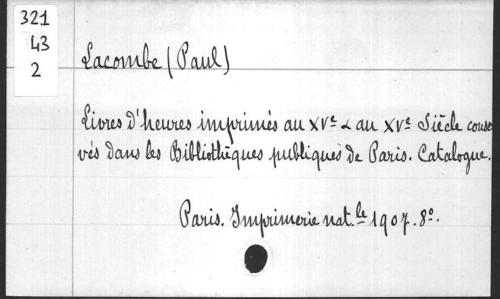 321
43
2
Lacombe (Paul)
Livres d'heures imprimés au XVe & au XVe Siècle conser
vés dans les Bibliothèques publiques de Paris. Catalogue.
Paris. Imprimerie nat.le 1907. 8o.